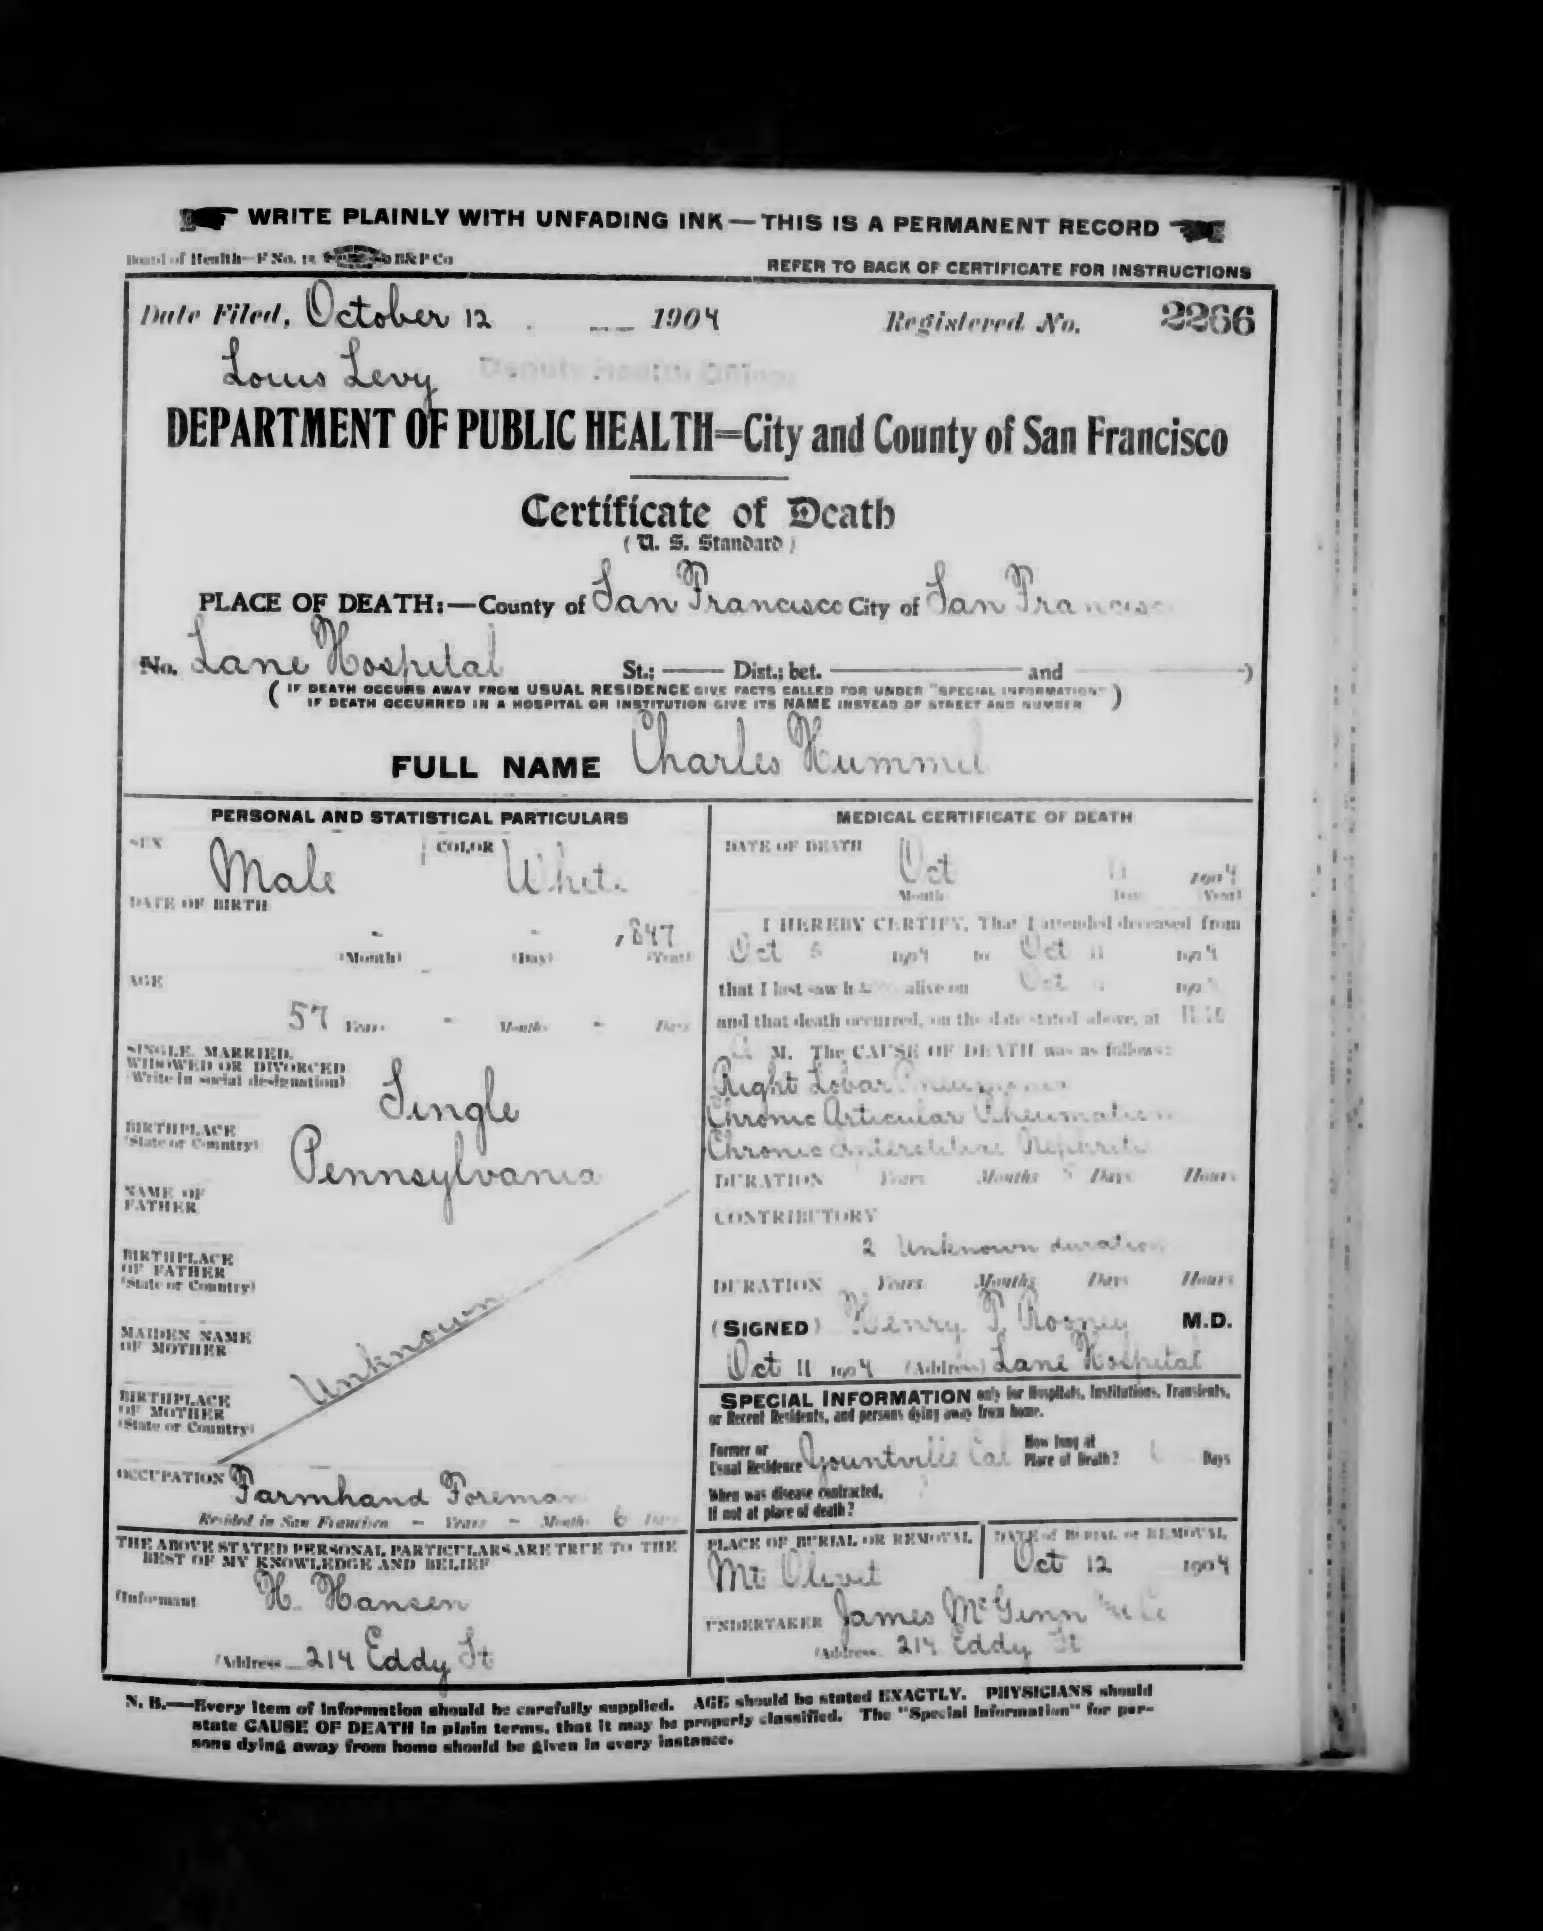 WRITE PLAINLY WITH UNFADING INK — THIS IS A PERMANENT RECORD
Board of Health—F No. 15 B&P Co
REFER TO BACK OF CERTIFICATE FOR INSTRUCTIONS
Date Filed, October 12 1904 Registered No. 2266
Louis Levy Deputy Health Officer
DEPARTMENT OF PUBLIC HEALTH=City and County of San Francisco
Certificate of Death
( U. S. Standard )
PLACE OF DEATH:—County of San Francisco City of San Francisco
No. Lane Hospital St.; —— Dist.; bet. —— and —— )
( IF DEATH OCCURS AWAY FROM USUAL RESIDENCE GIVE FACTS CALLED FOR UNDER "SPECIAL INFORMATION"
IF DEATH OCCURRED IN A HOSPITAL OR INSTITUTION GIVE ITS NAME INSTEAD OF STREET AND NUMBER )
FULL NAME Charles Hummel
PERSONAL AND STATISTICAL PARTICULARS
SEX Male COLOR White
DATE OF BIRTH
- - 1847
(Month) (Day) (Year)
AGE
57 Years - Months - Days
SINGLE, MARRIED,
WIDOWED OR DIVORCED
(Write in social designation) Single
BIRTHPLACE
(State or Country) Pennsylvania
NAME OF
FATHER
BIRTHPLACE
OF FATHER
(State or Country)
MAIDEN NAME
OF MOTHER
Unknown
BIRTHPLACE
OF MOTHER
(State or Country)
OCCUPATION Farmhand Foreman
Resided in San Francisco - Years - Months 6 Days
THE ABOVE STATED PERSONAL PARTICULARS ARE TRUE TO THE
BEST OF MY KNOWLEDGE AND BELIEF
(Informant H. Hansen
(Address 214 Eddy St
MEDICAL CERTIFICATE OF DEATH
DATE OF DEATH
Oct 11 1904
(Month) (Day) (Year)
I HEREBY CERTIFY, That I attended deceased from
Oct 5 1904 to Oct 11 1904
that I last saw h alive on Oct 190
and that death occurred, on the date stated above, at
M. The CAUSE OF DEATH was as follows:
Right Lobar Pneumonia
Chronic Articular Rheumatism
Chronic Interstitial Nephritis
DURATION Years Months 5 Days Hours
CONTRIBUTORY
2 Unknown duration
DURATION Years Months Days Hours
(SIGNED) Henry P. Rooney M.D.
Oct 11 1904 (Address) Lane Hospital
SPECIAL INFORMATION only for Hospitals, Institutions, Transients,
or Recent Residents, and persons dying away from home.
Former or
Usual Residence Yountville Cal How long at
Place of Death? Days
When was disease contracted,
If not at place of death?
PLACE OF BURIAL OR REMOVAL DATE of BURIAL or REMOVAL
Mt Olivet Oct 12 1904
UNDERTAKER James McGinn
(Address 214 Eddy St
N. B.—Every item of information should be carefully supplied. AGE should be stated EXACTLY. PHYSICIANS should
state CAUSE OF DEATH in plain terms, that it may be properly classified. The "Special Information" for per-
sons dying away from home should be given in every instance.